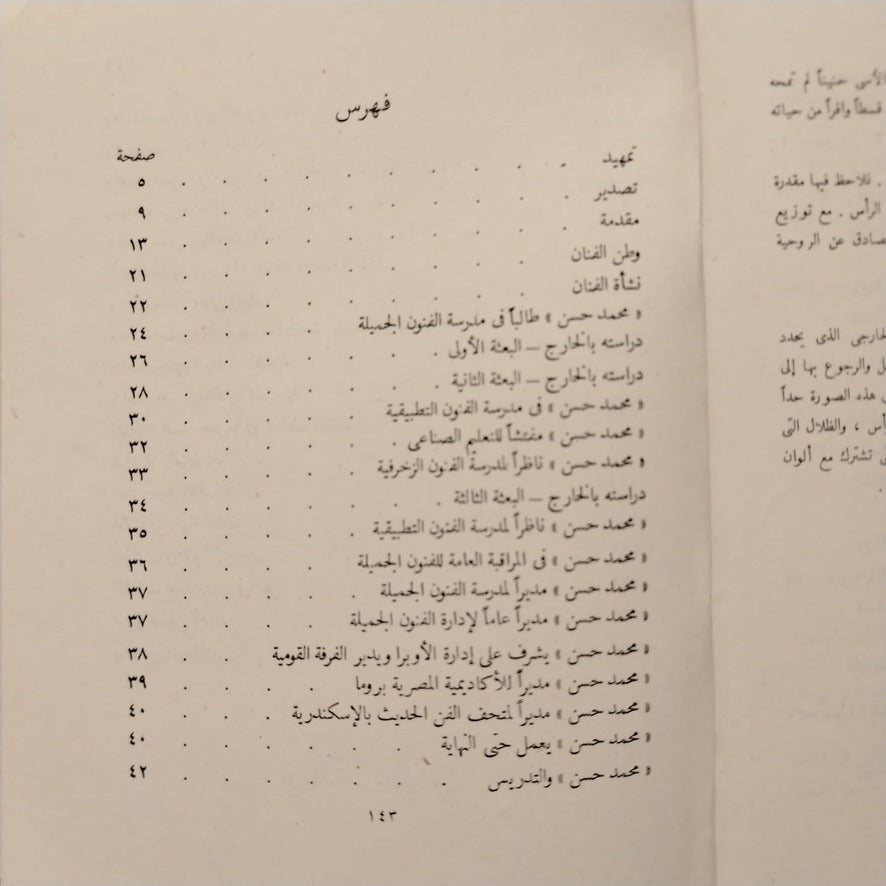 فهرس
صفحة
تمهيد . . . . . . . . . . ٥
تصدير . . . . . . . . . . ٩
مقدمة . . . . . . . . . . ١٣
وطن الفنان . . . . . . . . . ٢١
نشأة الفنان . . . . . . . . . ٢٢
« محمد حسن » طالباً فى مدرسة الفنون الجميلة . . . . ٢٤
دراسته بالخارج — البعثة الأولى . . . . . . ٢٦
دراسته بالخارج — البعثة الثانية . . . . . . ٢٨
« محمد حسن » فى مدرسة الفنون التطبيقية . . . . . ٣٠
« محمد حسن » مفتشاً للتعليم الصناعى . . . . . . ٣٢
« محمد حسن » ناظراً لمدرسة الفنون الزخرفية . . . . . ٣٣
دراسته بالخارج — البعثة الثالثة . . . . . . ٣٤
« محمد حسن » ناظراً لمدرسة الفنون التطبيقية . . . . . ٣٥
« محمد حسن » فى المراقبة العامة للفنون الجميلة . . . . ٣٦
« محمد حسن » مديراً لمدرسة الفنون الجميلة . . . . . ٣٧
« محمد حسن » مديراً عاماً لإدارة الفنون الجميلة . . . . ٣٧
« محمد حسن » يشرف على إدارة الأوبرا ويدير الفرقة القومية . . ٣٨
« محمد حسن » مديراً للأكاديمية المصرية بروما . . . . ٣٩
« محمد حسن » مديراً لمتحف الفن الحديث بالإسكندرية . . . ٤٠
« محمد حسن » يعمل حتى النهاية . . . . . . ٤٠
« محمد حسن » والتدريس . . . . . . . ٤٢
١٤٣
الأسى حنيناً لم تمحه
قسطاً وافراً من حياته
. فلاحظ فيها مقدرة
الرأس . مع توزيع
صادق عن الروحية
الذى يحدد
والرجوع بها إلى
هذه الصورة حداً
، والظلال التى
تشترك مع ألوان